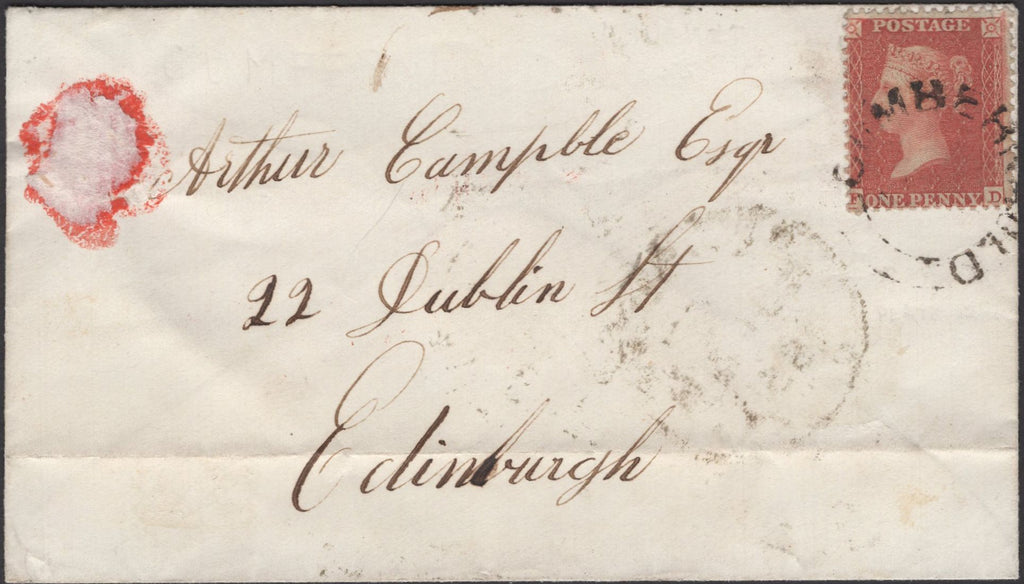 POSTAGE
ONE PENNY
F D
Arthur Campble Esqr
22 Dublin St
Edinburgh